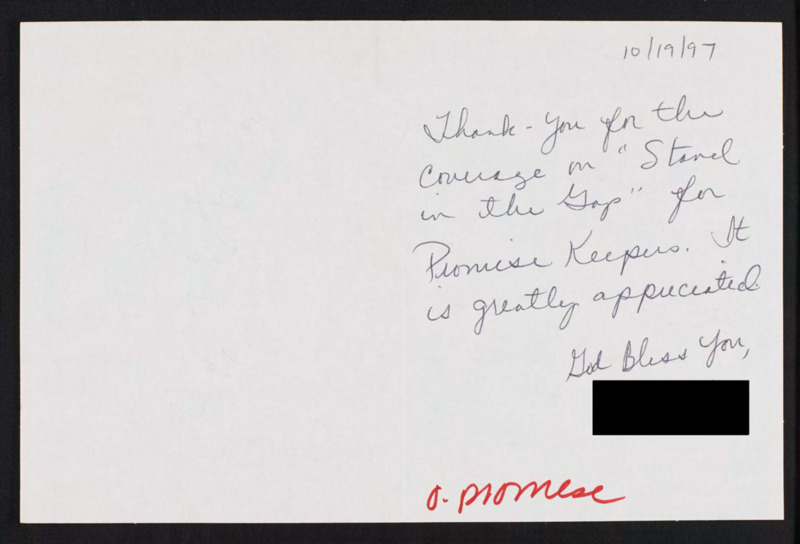 10/19/97
Thank-You for the
coverage on "Stand
in the Gap" for
Promise Keepers. It
is greatly appreciated
God Bless You,
o. promese